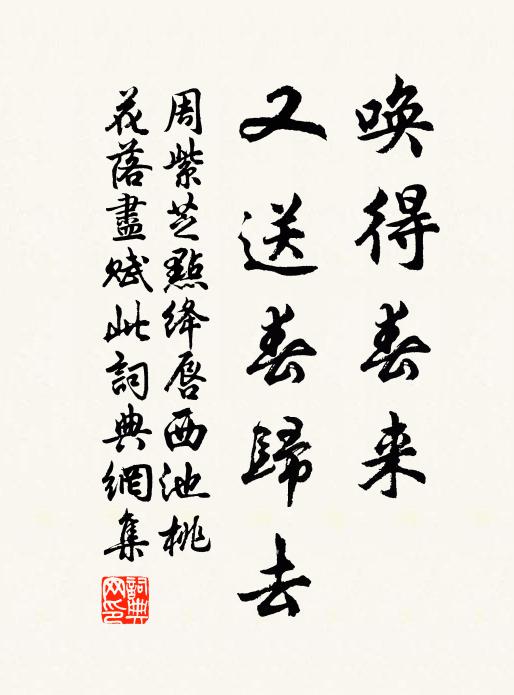 唤得春来
又送春歸去
周紫芝點绛唇西池桃
花落盡賦此詞典網集
詞典网印